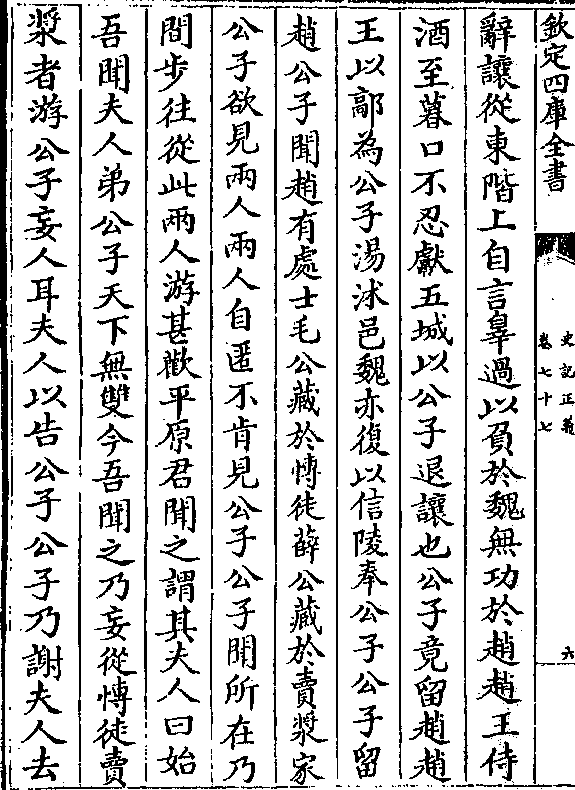 欽定四庫全書
史記正義
卷七十七
六
辭讓從東階上自言辠過以負於魏無功於趙趙王侍
酒至暮口不忍獻五城以公子退讓也公子竟留趙趙
王以鄗為公子湯沐邑魏亦復以信陵奉公子公子留
趙公子聞趙有處士毛公藏於愽徒薛公藏於賣漿家
公子欲見兩人兩人自匿不肯見公子公子聞所在乃
間步往從此兩人游甚歡平原君聞之謂其夫人曰始
吾聞夫人弟公子天下無雙今吾聞之乃妄從愽徒賣
漿者游公子妄人耳夫人以告公子公子乃謝夫人去